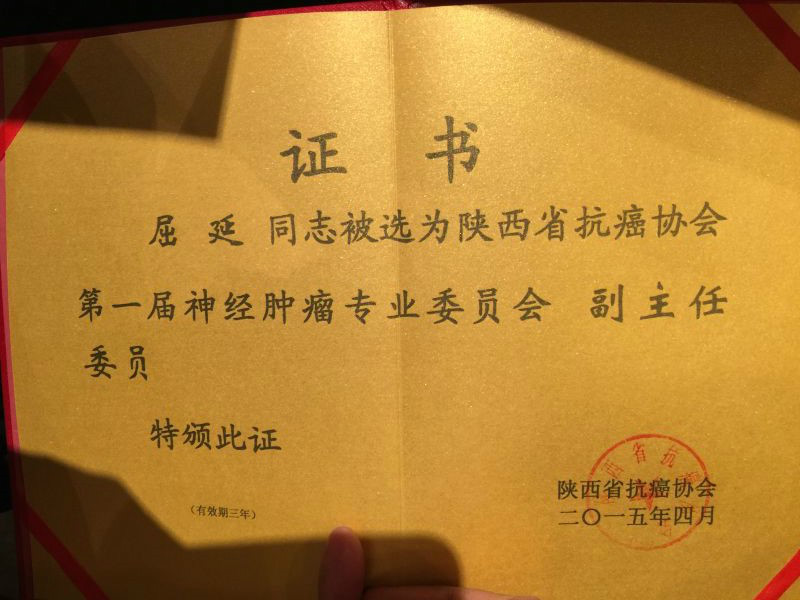 证 书
屈 延 同志被选为陕西省抗癌协会
第一届神经肿瘤专业委员会 副主任
委员
特颁此证
陕西省抗癌协会
二〇一五年四月
（有效期三年）